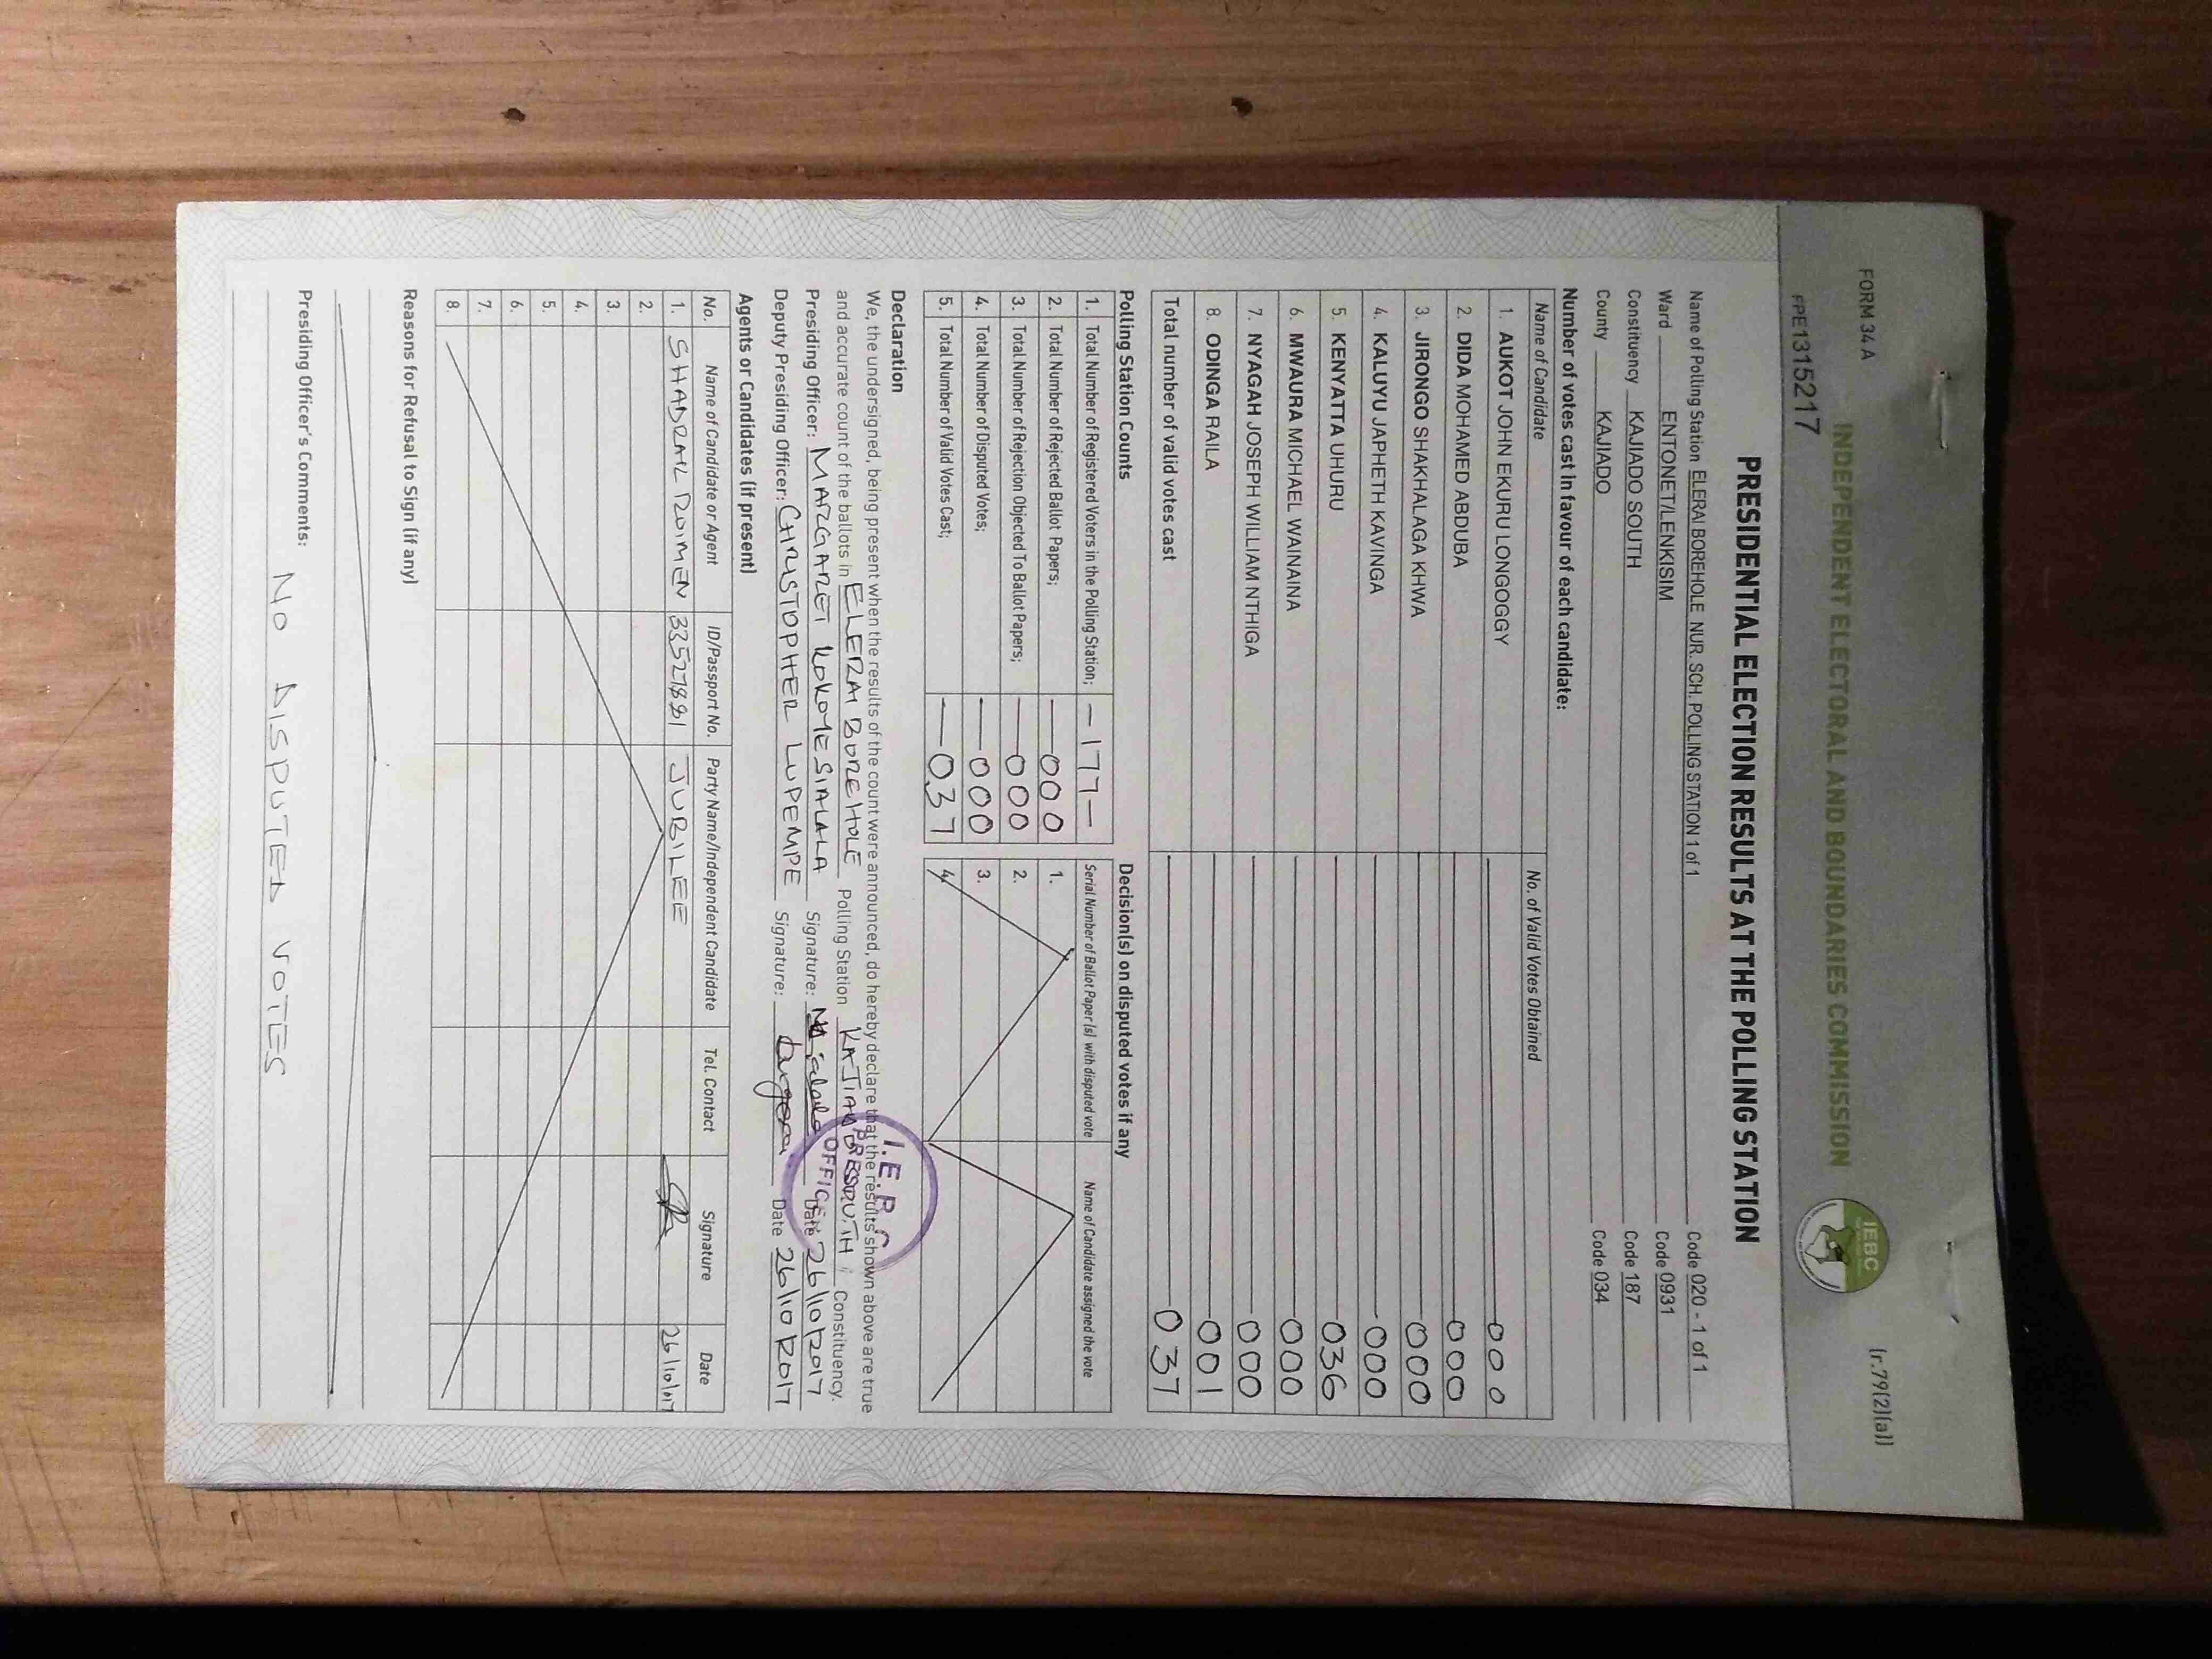 FORM 34 A
(r.79(2)(a))
INDEPENDENT ELECTORAL AND BOUNDARIES COMMISSION
IEBC
PE1315217
PRESIDENTIAL ELECTION RESULTS AT THE POLLING STATION
Name of Polling Station ELERAI BOREHOLE NUR. SCH. POLLING STATION 1 of 1 Code 020 - 1 of 1
Ward ENTONET/LENKISIM Code 0931
Constituency KAJIADO SOUTH Code 187
County KAJIADO Code 034
Number of votes cast in favour of each candidate:
Name of Candidate No. of Valid Votes Obtained
1. AUKOT JOHN EKURU LONGOGGY 000
2. DIDA MOHAMED ABDUBA 000
3. JIRONGO SHAKHALAGA KHWA 000
4. KALUYU JAPHETH KAVINGA 000
5. KENYATTA UHURU 036
6. MWAURA MICHAEL WAINAINA 000
7. NYAGAH JOSEPH WILLIAM NTHIGA 000
8. ODINGA RAILA 001
Total number of valid votes cast 037
Polling Station Counts Decision(s) on disputed votes if any
1. Total Number of Registered Voters in the Polling Station; -177- Serial Number of Ballot Paper (s) with disputed vote Name of Candidate assigned the vote
2. Total Number of Rejected Ballot Papers; 000 1.
3. Total Number of Rejection Objected To Ballot Papers; 000 2.
4. Total Number of Disputed Votes; 000 3.
5. Total Number of Valid Votes Cast; 037 4.
Declaration
We, the undersigned, being present when the results of the count were announced, do hereby declare that the results shown above are true
and accurate count of the ballots in ELERAI BOREHOLE Polling Station KAJIADO SOUTH Constituency.
Presiding Officer: MARGARET KOKOYESIALALA Signature: Date 26/10/2017
Deputy Presiding Officer: CHRISTOPHER LUPEMPE Signature: Date 26/10/2017
I.E.B.C
PRESIDING
OFFICER
Agents or Candidates (if present)
No. Name of Candidate or Agent ID/Passport No. Party Name/Independent Candidate Tel. Contact Signature Date
1. SHADRAK ROIMEN 33527881 JUBILEE 26/10/017
2.
3.
4.
5.
6.
7.
8.
Reasons for Refusal to Sign (if any)
Presiding Officer's Comments:
NO DISPUTED VOTES